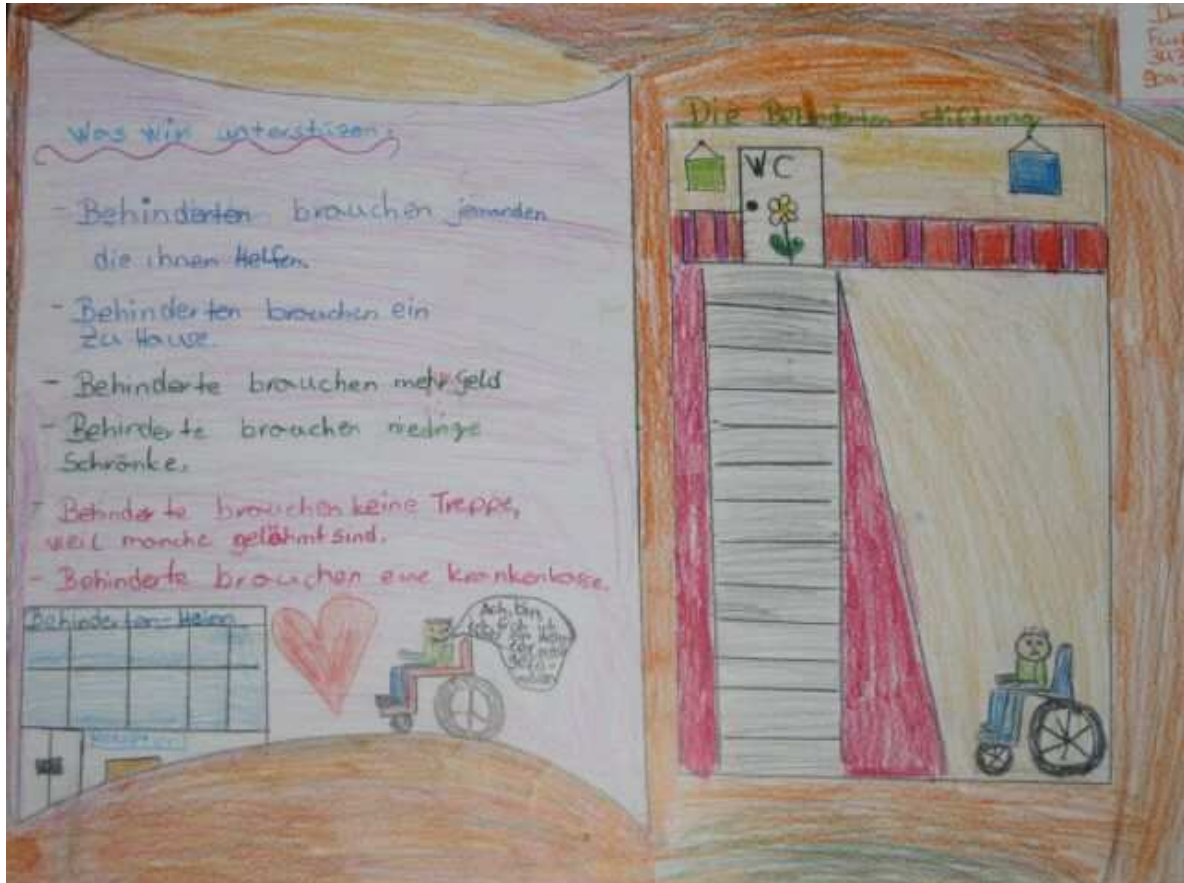 Was wir unterstüzen:
- Behinderten brauchen jemanden
die ihnen Helfen.
- Behinderten brauchen ein
Zu Hause.
- Behinderte brauchen mehr geld
- Behinderte brauchen niedrige
Schränke.
- Behinderte brauchen keine Treppe,
weil manche gelähmt sind.
- Behinderte brauchen eine Krankenkasse.
Behinderten-Heim
Ach, bin
Die Behinderten stiftung
WC